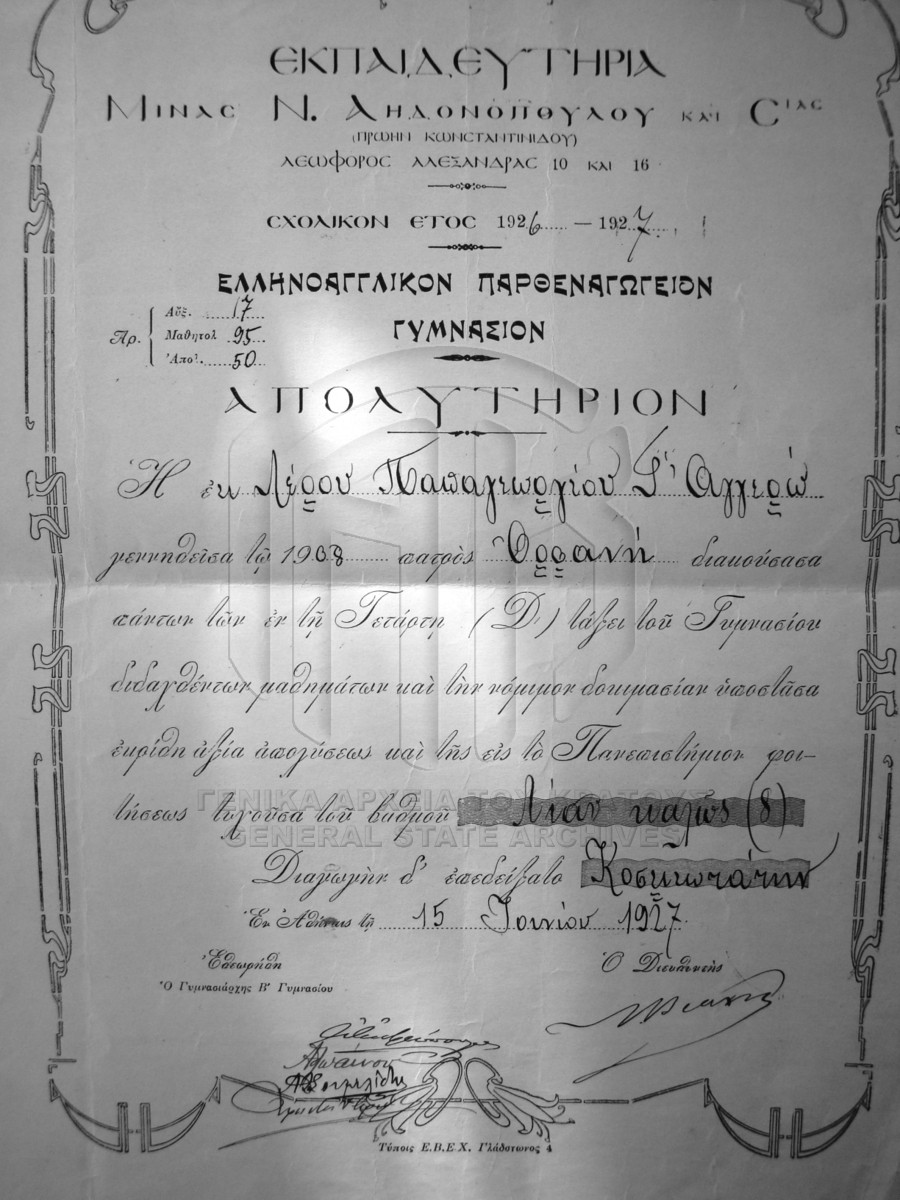 ΕΚΠΑΙΔΕΥΤΗΡΙΑ
ΜΙΝΑΣ Ν. ΑΗΔΟΝΟΠΟΥΛΟΥ ΚΑΙ ΣΙΑΣ
(ΠΡΩΗΝ ΚΩΝΣΤΑΝΤΙΝΙΔΟΥ)
ΛΕΩΦΟΡΟΣ ΑΛΕΞΑΝΔΡΑΣ 10 ΚΑΙ 16
ΣΧΟΛΙΚΟΝ ΕΤΟΣ 1926 — 1927
ΕΛΛΗΝΟΑΓΓΛΙΚΟΝ ΠΑΡΘΕΝΑΓΩΓΕΙΟΝ
ΓΥΜΝΑΣΙΟΝ
Ἀρ. Αὔξ. 17
Μαθητολ 95
Ἀπολ. 50
ΑΠΟΛΥΤΗΡΙΟΝ
Ἡ ἐκ Λέρου Παπαγεωργίου Γ. Αγγερώ
γεννηθεῖσα τῷ 1908 πατρὸς Ὀρφανή διακούσασα
πάντων τῶν ἐν τῇ Τετάρτῃ (Δ') τάξει τοῦ Γυμνασίου
διδαχθέντων μαθημάτων καὶ τὴν νόμιμον δοκιμασίαν ὑποστᾶσα
ἐκρίθη ἀξία ἀπολύσεως καὶ τῆς εἰς τὸ Πανεπιστήμιον φοι-
τήσεως τυχοῦσα τοῦ βαθμοῦ Λίαν καλῶς (8)
Διαγωγὴν δ' ἐπεδείξατο Κοσμιωτάτην
Ἐν Ἀθήναις τῇ 15 Ἰουνίου 1927
Ἐθεωρήθη Ὁ Διευθυντὴς
Ὁ Γυμνασιάρχης Β' Γυμνασίου
Τύποις Ε.Β.Ε.Χ. Γλάδστωνος 4
ΓΕΝΙΚΑ ΑΡΧΕΙΑ ΤΟΥ ΚΡΑΤΟΥΣ
GENERAL STATE ARCHIVES